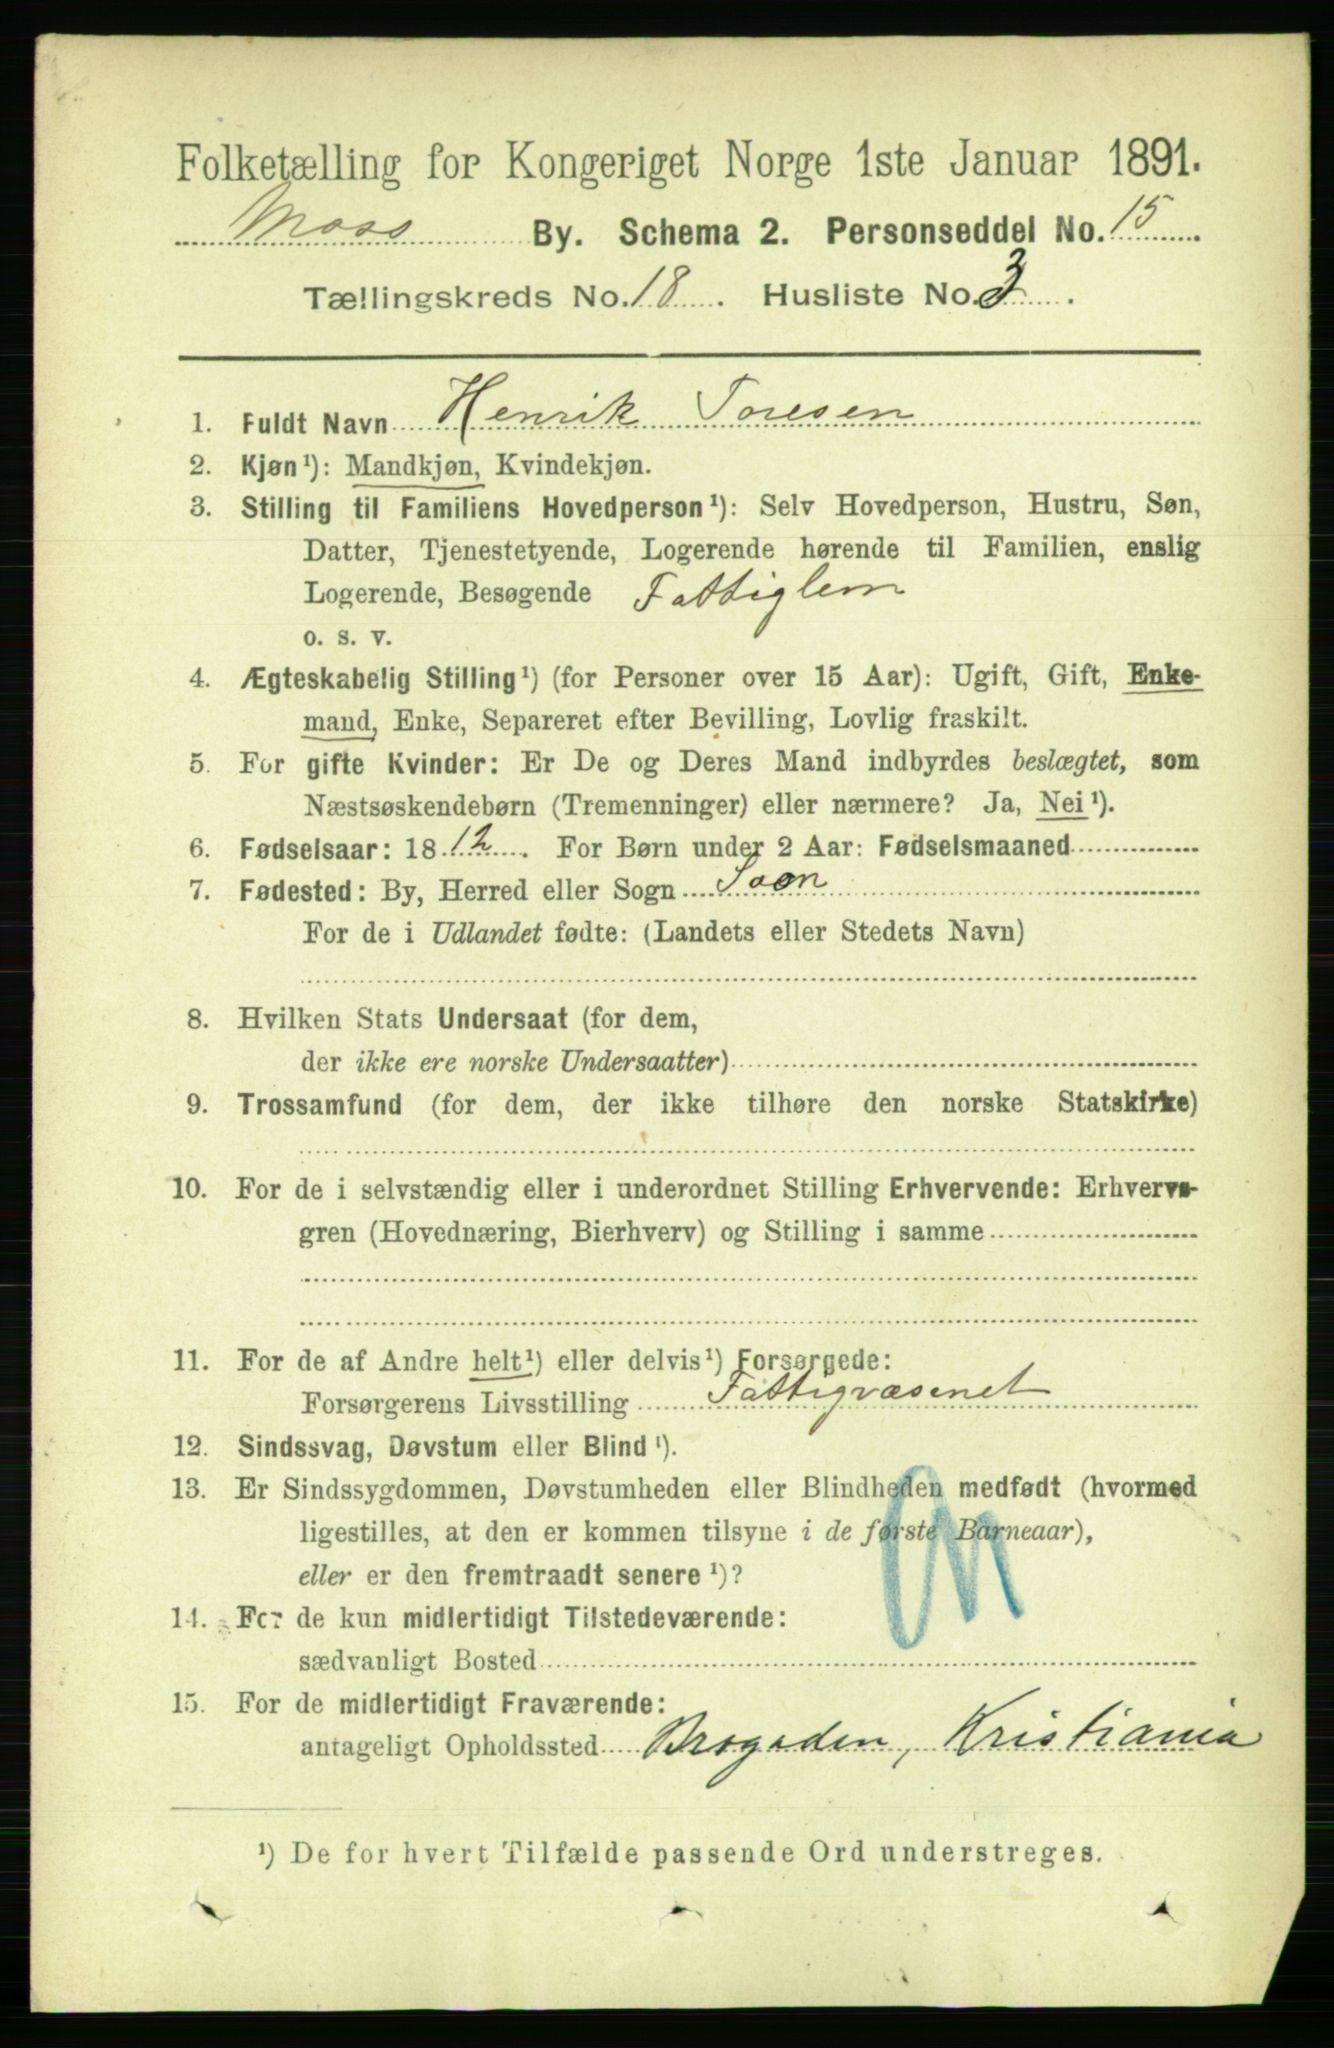 Folketælling for Kongeriget Norge 1ste Januar 1891.
Moss By. Schema 2. Personseddel No. 15
Tællingskreds No. 18. Husliste No. 3.
1. Fuldt Navn Henrik Toresen
2. Kjøn ¹): Mandkjøn, Kvindekjøn.
3. Stilling til Familiens Hovedperson ¹): Selv Hovedperson, Hustru, Søn,
Datter, Tjenestetyende, Logerende hørende til Familien, enslig
Logerende, Besøgende Fattiglem
o. s. v.
4. Ægteskabelig Stilling ¹) (for Personer over 15 Aar): Ugift, Gift, Enke-
mand, Enke, Separeret efter Bevilling, Lovlig fraskilt.
5. For gifte Kvinder: Er De og Deres Mand indbyrdes beslægtet, som
Næstsøskendebørn (Tremenninger) eller nærmere? Ja, Nei ¹).
6. Fødselsaar: 1812. For Børn under 2 Aar: Fødselsmaaned
7. Fødested: By, Herred eller Sogn Soon
For de i Udlandet fødte: (Landets eller Stedets Navn)
8. Hvilken Stats Undersaat (for dem,
der ikke ere norske Undersaatter)
9. Trossamfund (for dem, der ikke tilhøre den norske Statskirke)
10. For de i selvstændig eller i underordnet Stilling Erhvervende: Erhvervs-
gren (Hovednæring, Bierhverv) og Stilling i samme
11. For de af Andre helt ¹) eller delvis ¹) Forsørgede:
Forsørgerens Livsstilling Fattigvæsenet
12. Sindssvag, Døvstum eller Blind ¹).
13. Er Sindssygdommen, Døvstumheden eller Blindheden medfødt (hvormed
ligestilles, at den er kommen tilsyne i de første Barneaar),
eller er den fremtraadt senere ¹)?
14. For de kun midlertidigt Tilstedeværende:
sædvanligt Bosted
15. For de midlertidigt Fraværende:
antageligt Opholdssted Brogaden, Kristiania
¹) De for hvert Tilfælde passende Ord understreges.